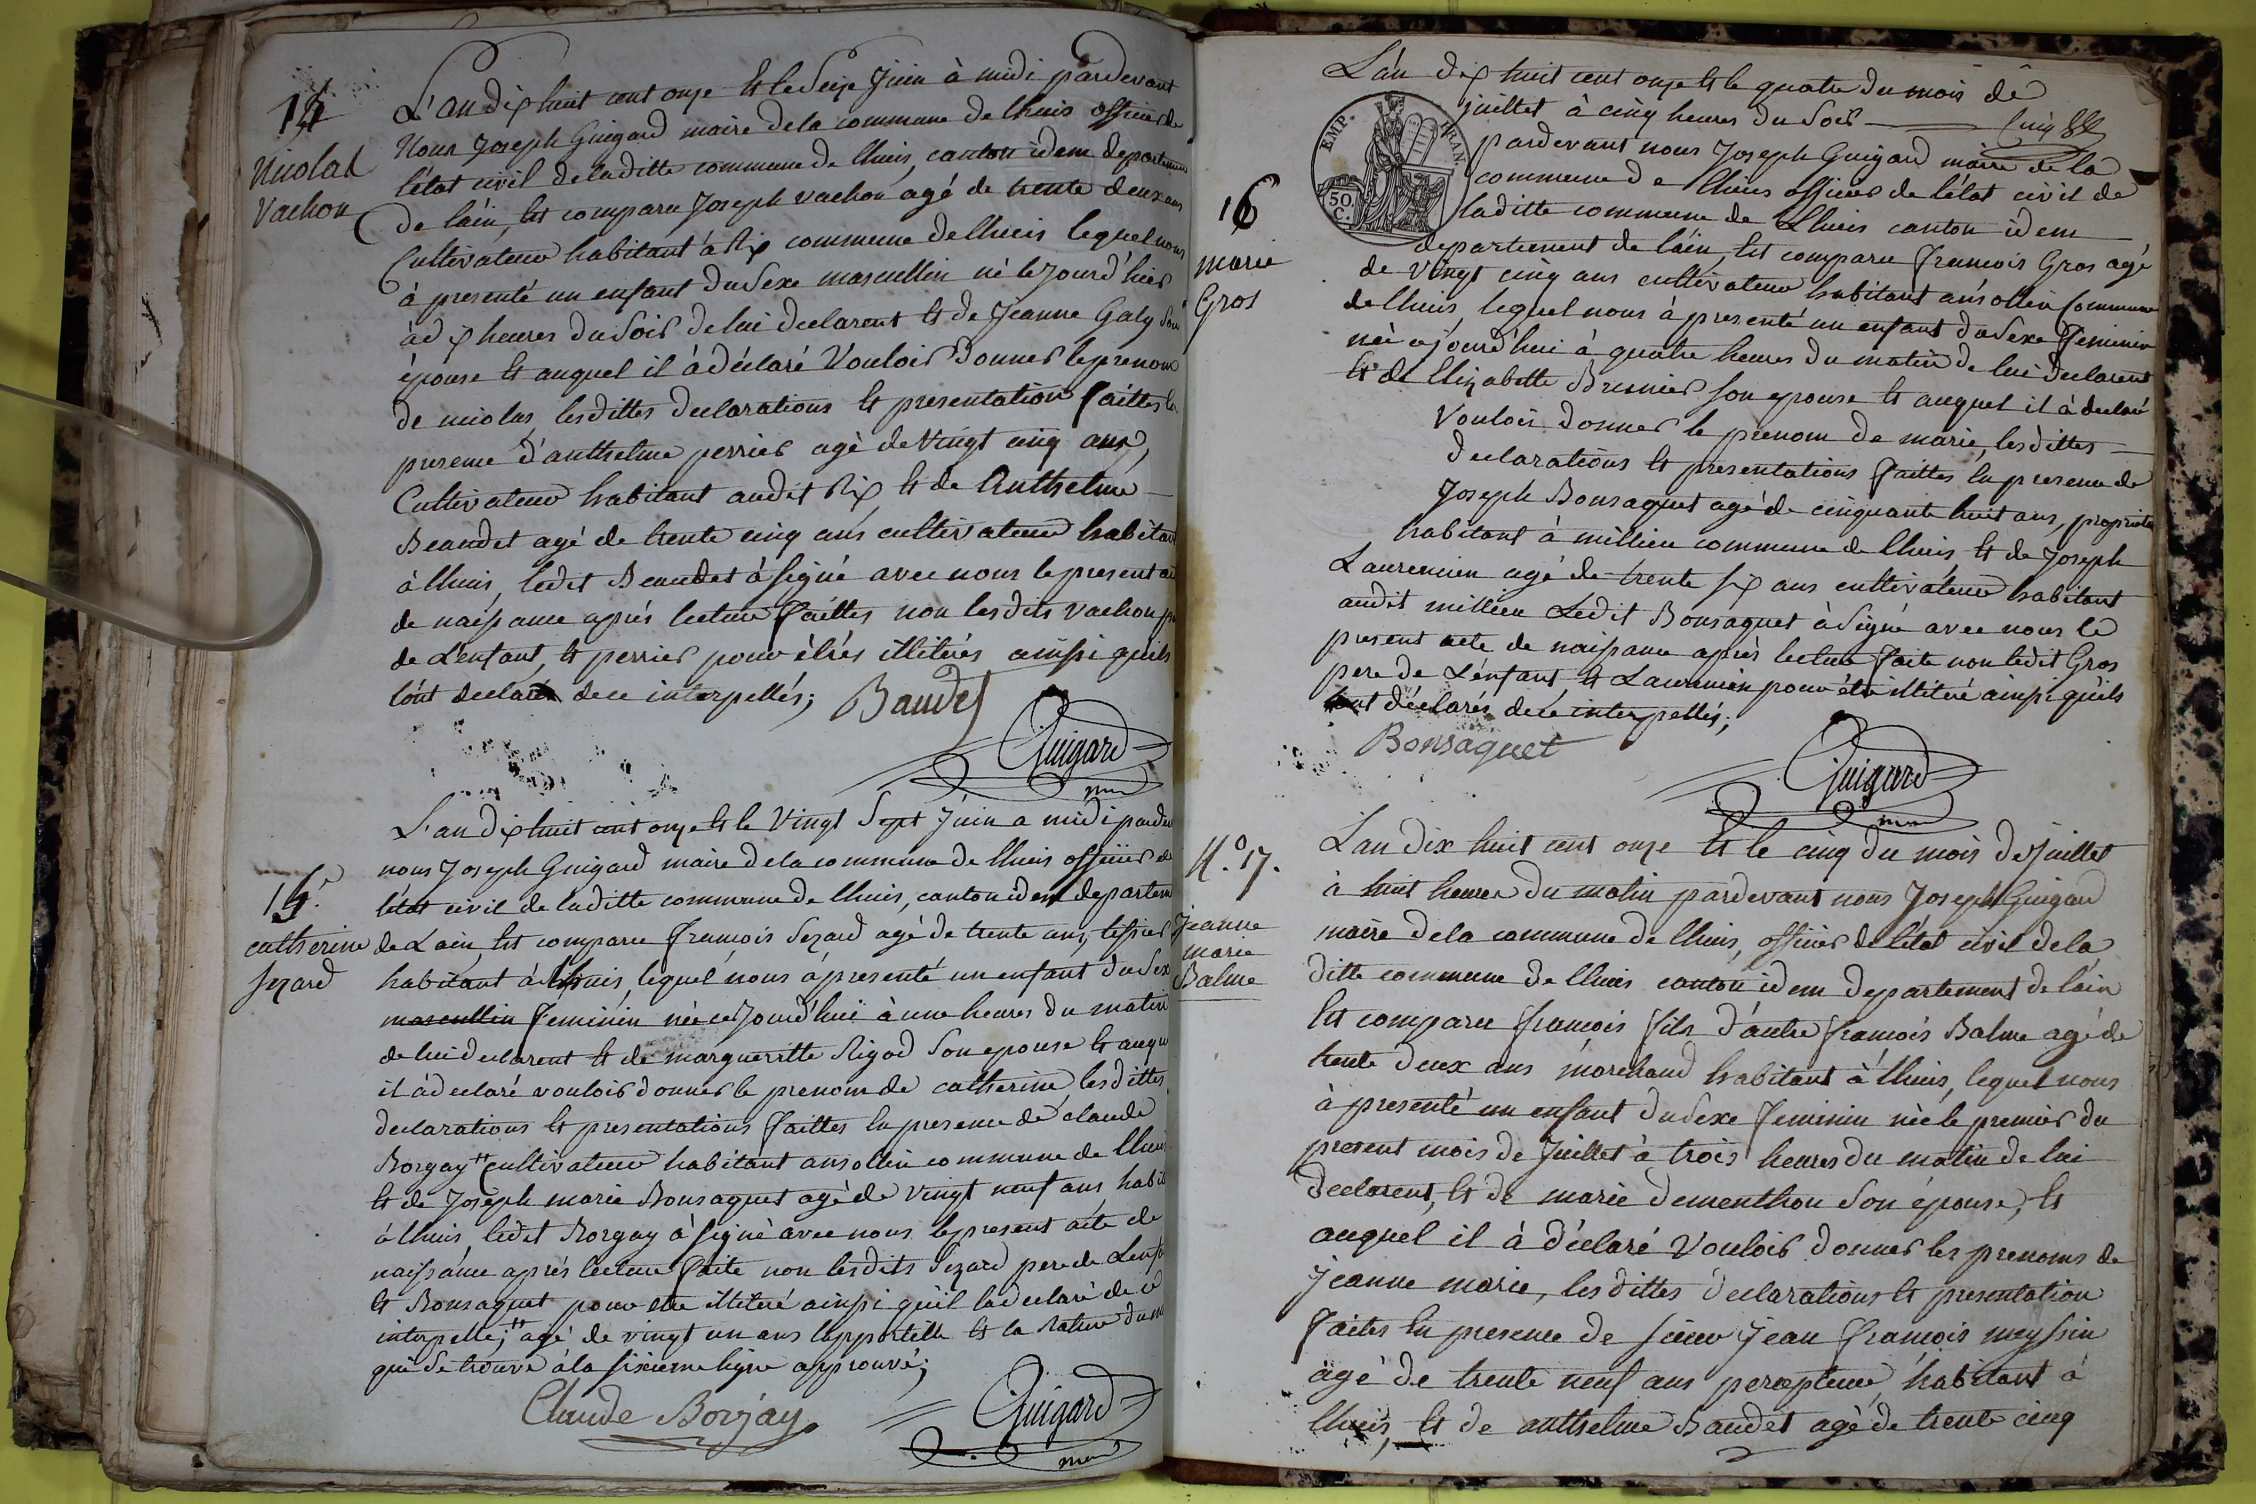 14
Nicolas
Vachon
L'an dix huit cent onze et le Seize Juin à midi pardevant
Nous Joseph Guigard maire de la commune de lhuis officier de
létat civil de laditte commune de lhuis, canton idem departement
de láin, Est comparu Joseph vachon agé de trente deux ans
Cultivateur habitant à Rix commune de lhuis lequel nous
à presenté un enfant du Sexe mascullin né le jourd'hier
à dix heures du Soir de lui declarent et de Jeanne Galy Son
épouse et auquel il à déclaré Vouloir Donner le prenom
de nicolas, lesdittes declarations et presentation faittes En
presence d'anthelme perrier agé de Vingt cinq ans,
Cultivateur habitant audit Rix et de Anthelme
Beaudet agé de trente cinq ans cultivateur habitant
à lhuis, ledit Beaudet à signé avec nous le present acte
de naissance aprés lecture faittes non lesdits vachon pere
de L'enfant, et perrier pour êtrés illitérés ainssi quils
lónt declaré de ce interpellés;
Baudet
Guigard
maire
15.
catherine
Sezard
L'an dix huit cent onze et le Vingt Sept Juin a midi pardevant
nous Joseph Guigard maire de la commune de lhuis officier de
létat civil de laditte commune de lhuis, canton idem departement
de Lain, Est comparu françois Sezard agé de trente ans, tessier
habitant à lhuis, lequel nous à presenté un enfant du Sexe
mascullin feminin née cejourd'hui à une heures du matin
de lui declarent et de marguerritte Rigod Son epouse et auquel
il à declaré vouloir donner le prenom de catherine, lesdittes
declarations et presentations faittes En presence de claude
Borgay ++ cultivateur habitant ansollin commune de lhuis
et de Joseph marie Bonsaquet agé de vingt neuf ans habitant
à lhuis, ledit Borgay à signé avec nous le present acte de
naissance aprés lecture faite non lesdits Sezard pere de Lenfant
et Bonsaquet pour etre illitéré ainssi quil la declaré de ce
interpellé; ++ agé de vingt un ans lapportille et la rature du mot
qui Se trouve à la sixieme ligne approuvé;
Claude Borjay
Guigard
maire
EMP. FRAN.
50 C.
16
marie
Gros
L'án dix huit cent onze et le quatre du mois de
juillet à cinq heures du Soir
pardevant nous Joseph Guigard maire de la
commune de lhuis officier de létat civil de
laditte commune de Lhuis canton idem
departement de láin, Est comparu francois Gros agé
de vingt cinq ans cultivateur habitant ansollin Commune
de lhuis, lequel nous à presenté un enfant du Sexe feminin
née cejourd'hui à quatre heures du matin de lui declarent
Et de Elizabette Brunier son epouse et auquel il à declaré
Vouloir donner le prenom de marie, lesdittes
declarations et presentations faittes En presence de
Joseph Bonsaquet agé de cinquante huit ans, propriétaire
habitant à millieu commune de lhuis, et de Joseph
Laurencien agé de trente six ans cultivateur habitant
audit millieu Ledit Bonsaquet à signé avec nous le
present acte de naissance aprés lecture faite non ledit Gros
pere de L'énfant et Laurencien pour étre illitéré ainssi quils
lont declarés de ce interpellés;
Bonsaquet
Guigard
maire
N.o 17.
Jeanne
marie
Balme
L'an dix huit cent onze et le cinq du mois de Juillet
à huit heures du matin pardevant nous Joseph Guigard
maire de la commune de lhuis, officier de létat civil de la
ditte commune de lhuis canton idem departement de láin
Est comparu françois fils d'autre françois Balme agé de
trente deux ans marchand habitant à lhuis, lequel nous
à presenté un enfant du Sexe feminin née le premier du
present mois de Juillet à trois heures du matin de lui
declarent, et de marie dementhon Son épouse, et
auquel il à déclaré Vouloir donner les prenoms de
Jeanne marie, les dittes declarations et presentation
faites En presence de sieur Jean françois meyssin
agé de trente neuf ans percepteur, habitant à
lhuis, et de anthelme Baudet agé de trente cinq